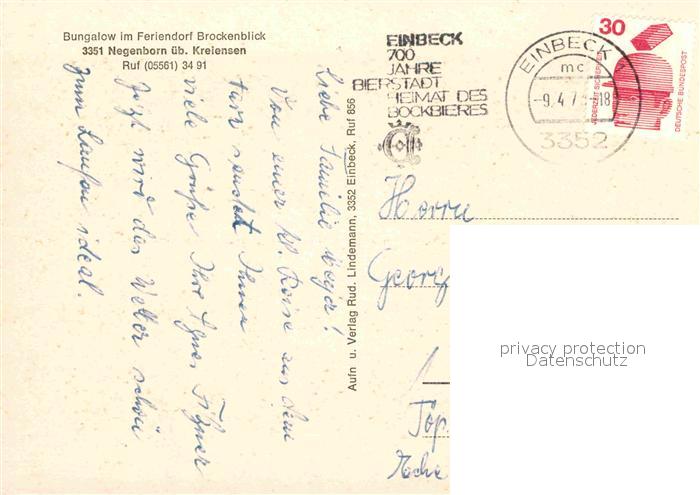 Bungalow im Feriendorf Brockenblick
3351 Negenborn üb. Kreiensen
Ruf (05561) 34 91
Liebe Familie Meyer!
Von einer kl. Reise aus dem
Harz sendet Ihnen
viele Grüße Ihre Agnes
Jetzt wird das Wetter schön
zum Laufen ideal.
Aufn u. Verlag Rud. Lindemann, 3352 Einbeck, Ruf 856
EINBECK
700
JAHRE
BIERSTADT
HEIMAT DES
BOCKBIERES
EINBECK
mc
-9.4.7
18
3352
30
JEDERZEIT SICHERHEIT
DEUTSCHE BUNDESPOST
Herrn
Georg
privacy protection
Datenschutz